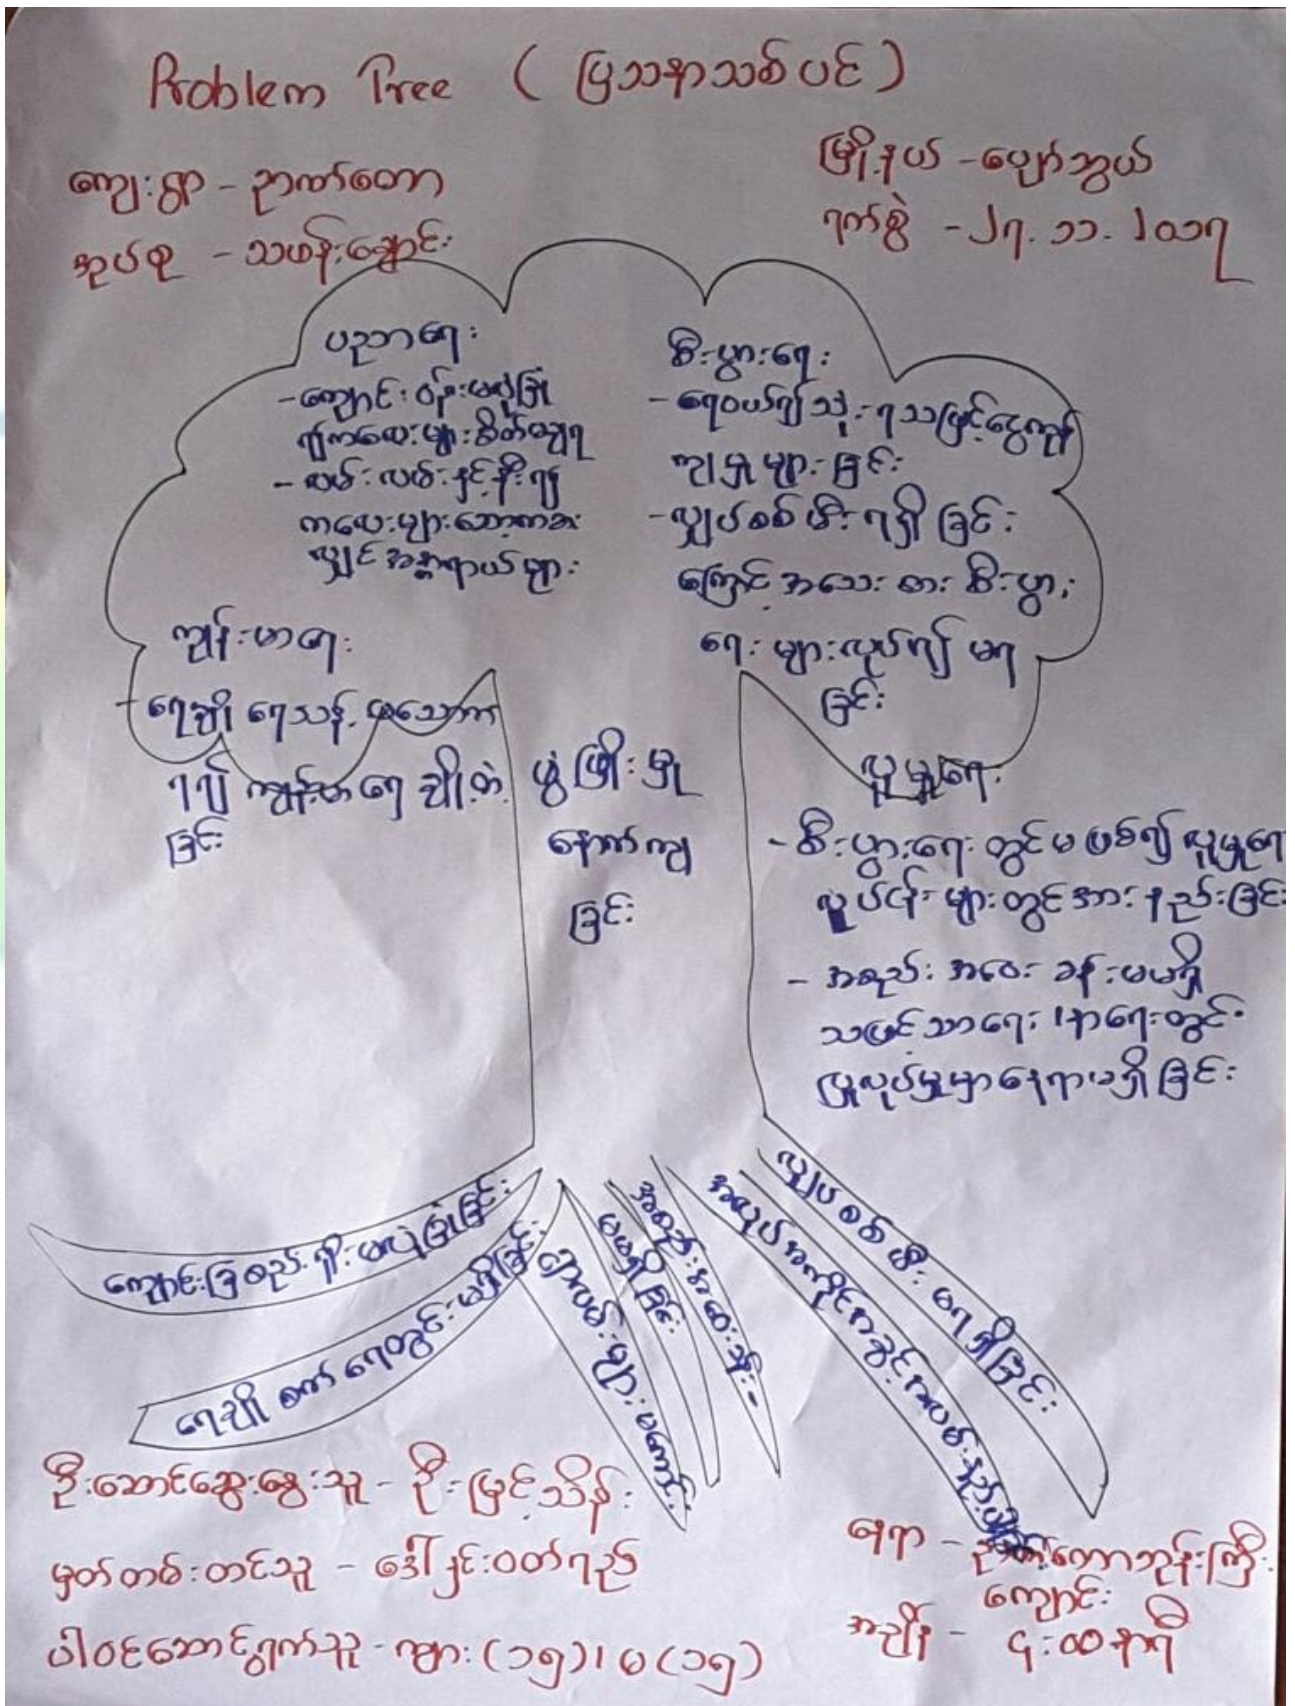 Problem Tree ( ပြဿနာသစ်ပင် )
ကျေးရွာ - ဉာဏ်တော
အုပ်စု - သဖန်းချောင်း
မြို့နယ် - ပျော်ဘွယ်
ရက်စွဲ - ၂၇.၁၁.၂၀၁၇
ပညာရေး
- ကျောင်းဝန်းမလုံခြုံ
၍ကလေးများစိတ်မချရ
- လမ်းနှင့်နီး၍
ကလေးများဆော့ကစား
လျှင်အန္တရာယ်များ
စီးပွားရေး
- ရေဝယ်၍သုံးရသဖြင့်ငွေကုန်
ကျမှုများခြင်း
- လျှပ်စစ်မီးရရှိခြင်း
ကြောင့်အသေးစားစီးပွား
ရေးများလုပ်၍မရ
ခြင်း
ကျန်းမာရေး
- ရေချိုရေသန့်မသောက်
ရ၍ကျန်းမာရေချို့တဲ့
ခြင်း
ဖွံ့ဖြိုးမှု
နောက်ကျ
ခြင်း
လူမှုရေး
- စီးပွားရေးတွင်မဖြစ်၍လူမှုရေး
လုပ်ငန်းများတွင်အားနည်းခြင်း
- အစည်းအဝေးခန်းမမရှိ
သဖြင့်သာရေး၊နာရေးတွင်
ပြုလုပ်မှုမှာနေရာမရှိခြင်း
ကျောင်းခြံစည်းရိုးမလုံခြုံခြင်း
ရေချိုစက်ရေတွင်းမရှိခြင်း
ရွာလမ်းများမကောင်း
မမရှိခြင်း
အစည်းအဝေးခန်း -
အလုပ်အကိုင်အခွင့်အလမ်းနည်းပါး
လျှပ်စစ်မီးမရရှိခြင်း
ဦးဆောင်ဆွေးနွေးသူ - ဦးမြင့်သိန်း
မှတ်တမ်းတင်သူ - ဒေါ်နှင်းဝတ်ရည်
ပါဝင်ဆောင်ရွက်သူ - ကျား (၁၅)၊ မ (၁၅)
နေရာ - ဉာဏ်တောဘုန်းကြီး
ကျောင်း
အချိန် - ၄:၀၀နာရီ